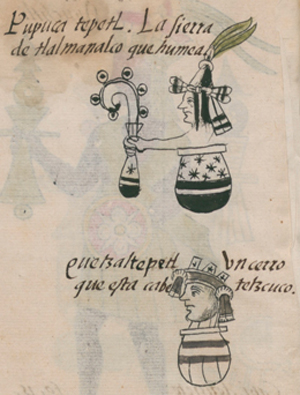 Pupuca tepetl. La sierra
de tlalmanalco que humea.
quetzaltepetl Un cerro
que esta cabe tetzcuco.